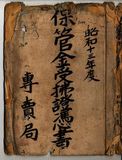 昭和十三年度
保管金受拂證憑書
專賣局